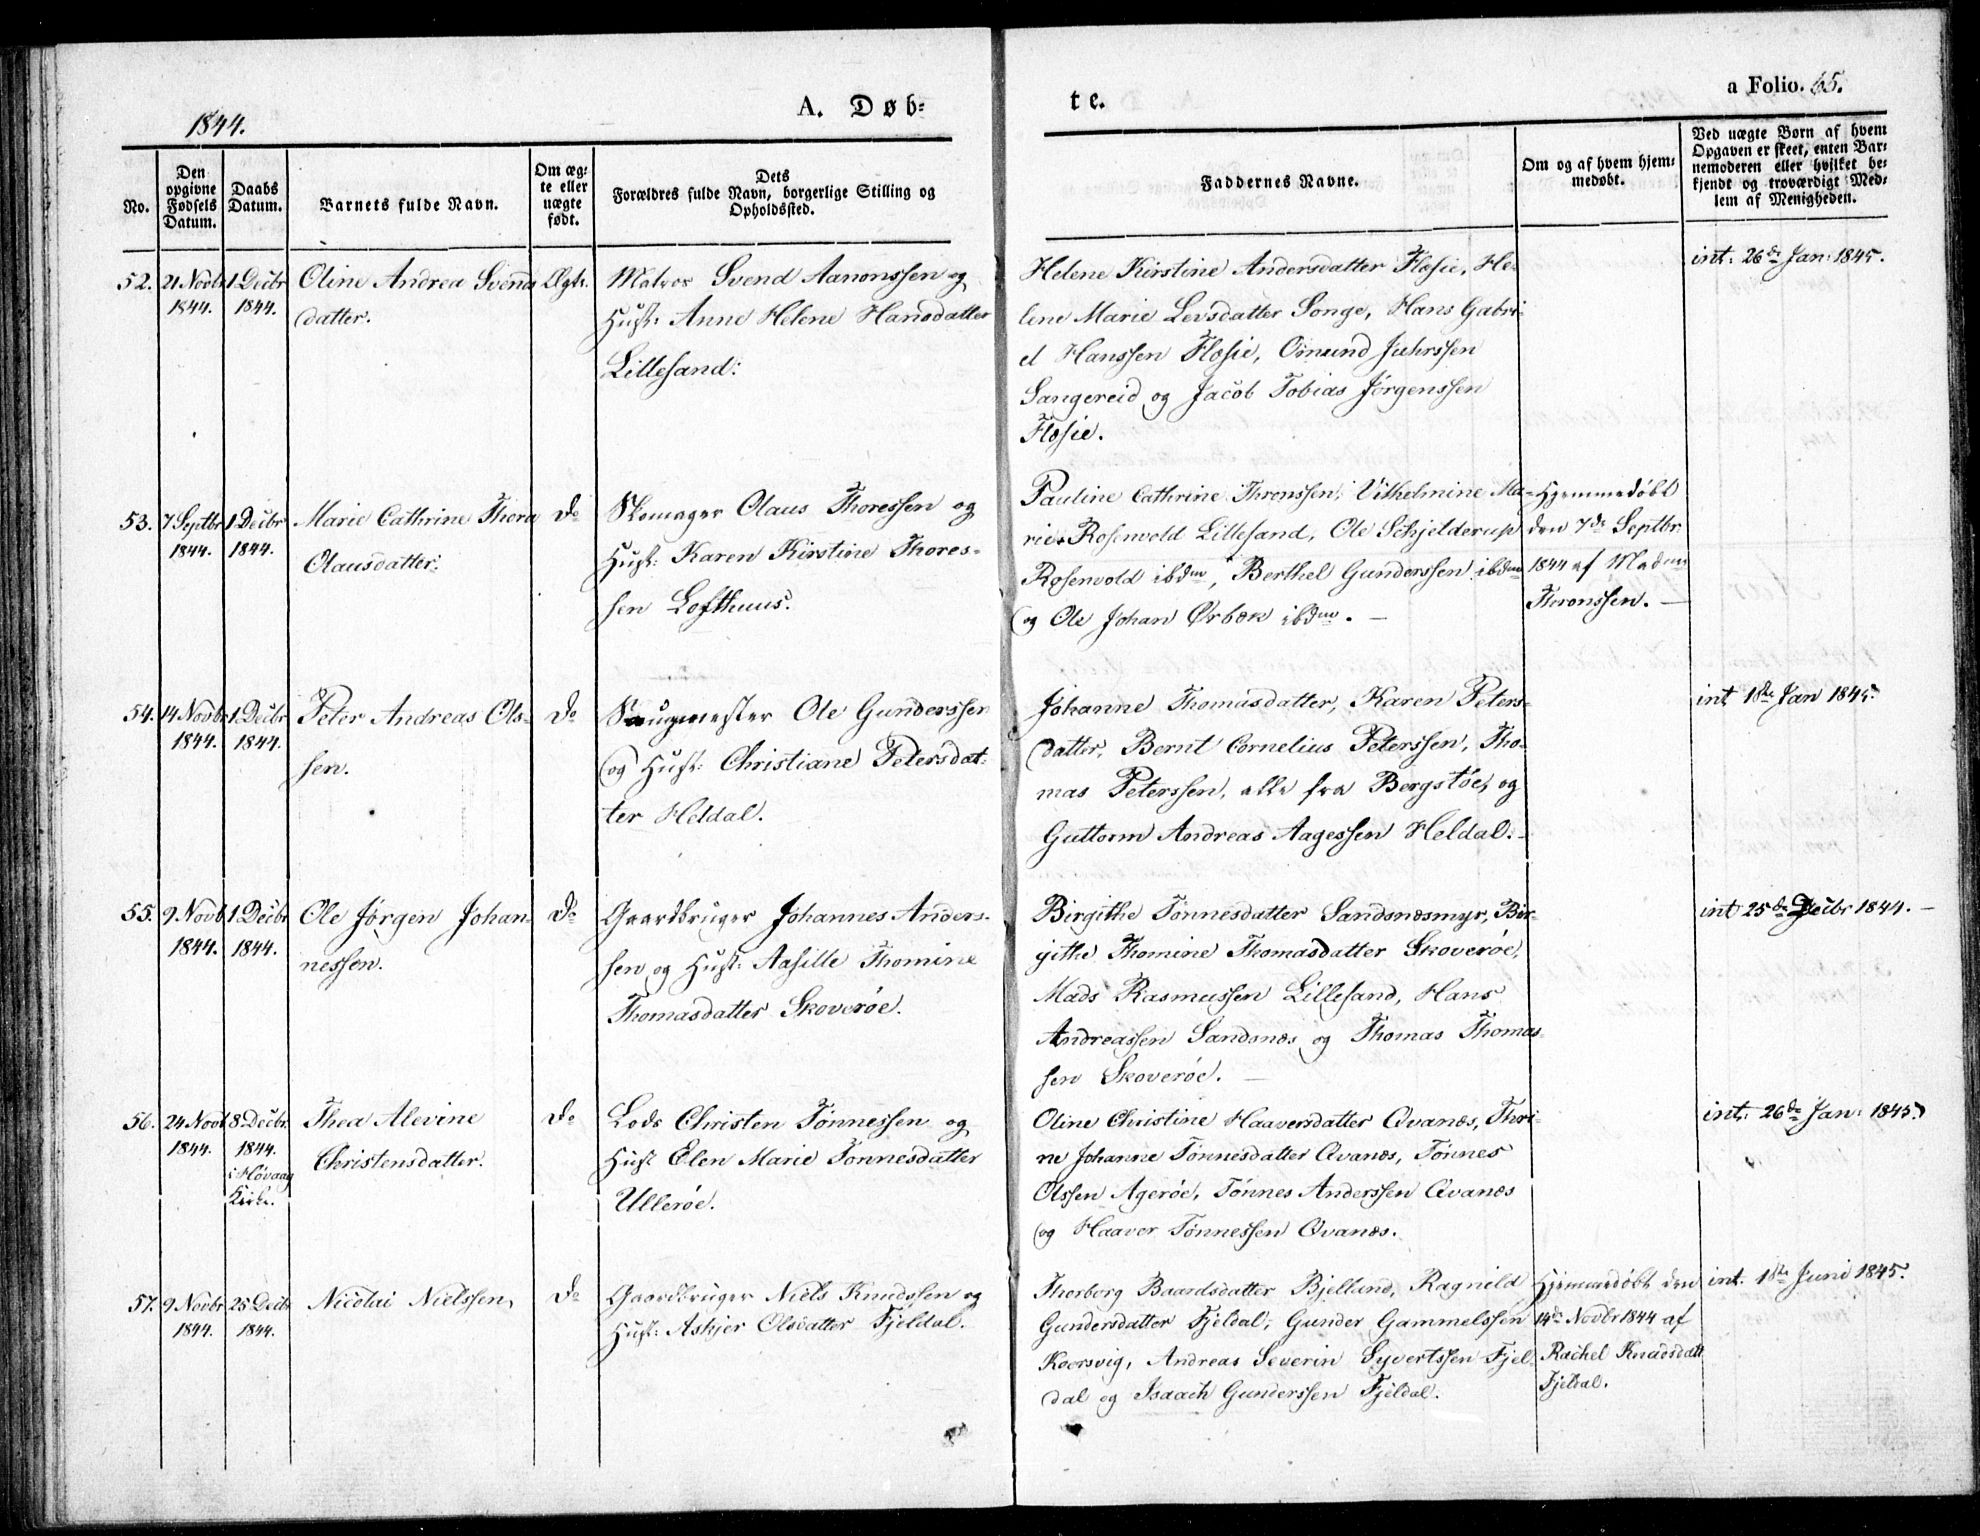 1844.
A. Døb=
te.
a Folio. 65.
No.
Den opgivne Fødsels Datum.
Daabs Datum.
Barnets fulde Navn.
Om ægte eller uægte født.
Dets Forældres fulde Navn, borgerlige Stilling og Opholdssted.
Faddernes Navne.
Om og af hvem hjemmedøbt.
Ved uægte Børn af hvem Opgaven er skeet, enten Barnemoderen eller hvilket bekjendt og troværdigt Medlem af Menigheden.
52. 21 Novbr 1844. 1 Decbr 1844.
Oline Andrea Svends
datter.
Ægte.
Matros Svend Aanonssen og
Hust: Anne Helene Hansdatter
Lillesand:
Helene Kirstine Andersdatter Flosie, He-
lene Marie Levsdatter Songe, Hans Gabri-
el Hanssen Flosie, Omund Juhrssen
Sangereid og Jacob Tobias Jørgenssen
Flosie.
int: 26de Jan: 1845.
53. 7 Septbr 1844. 1 Decbr 1844.
Marie Cathrine Thora
Olausdatter.
Do
Skomager Olaus Thoressen og
Hust: Karen Kirstine Thores-
sen Lofthuus.
Pauline Cathrine Thronssen, Vilhelmine Ma-
rie Rosenvold Lillesand, Ole Schjelderup
Rosenvold ibdm, Berthel Gunderssen ibdm
og Ole Johan Ørbæk ibdm. —
Hjemmedøbt
den 7de Septbr
1844 af Madm
Thronssen. —
54. 14 Novbr 1844. 1 Decbr 1844.
Peter Andreas Ols-
sen.
Do
Saugmester Ole Gunderssen
og Hust: Christiane Petersdat-
ter Heldal.
Johanne Thomasdatter, Karen Peters-
datter, Bernt Cornelius Peterssen, Tho-
mas Peterssen, alle fra Bergstøe, og
Guttorm Andreas Aagessen Heldal. -
int 1ste Jan 1845.
55. 9 Novbr 1844. 1 Decbr 1844.
Ole Jørgen Johan-
nessen.
Do
Gaardbruger Johannes Anders-
sen og Hust: Aasille Thomine
Thomasdatter Skoverøe.
Birgithe Tønnesdatter Sandsnæsmyr, Bir-
githe Thomine Thomasdatter Skoverøe,
Mads Rasmussen Lillesand, Hans
Andreassen Sandsnæs og Thomas Thomas-
sen Skoverøe. —
int 25de Decbr 1844. —
56. 24 Novbr 1844. 8 Decbr. 1844. i Høvaag Kirke.
Thea Alevine
Christensdatter.
Do
Lods Christen Tønnessen og
Hust Elen Marie Tønnesdatter
Ullerøe.
Oline Christine Haaversdatter Qvanæs, Thri-
ne Johanne Tønnesdatter Qvanæs, Tønnes
Olssen Agerøe, Tønnes Anderssen Qvanæs
og Haaver Tønnessen Qvanæs.
int: 26de Jan: 1845.
57. 9 Novbr 1844. 25 Decbr 1844.
Nicolai Nielssen,
Do
Gaardbruger Niels Knudssen og
Hust: Askjer Olsdatter Fjeldal.
Thorborg Baardsdatter Bjelland, Ragnild
Gundersdatter Fjeldal, Gunder Gammelssen
Koorsvig, Andreas Severin Syvertssen Fjel-
dal og Isaach Gunderssen Fjeldal.
Hjemmedøbt den
14de Novbr 1844 af
Rachel Knudsdatt
Fjeldal.
int. 1ste Juni 1845.